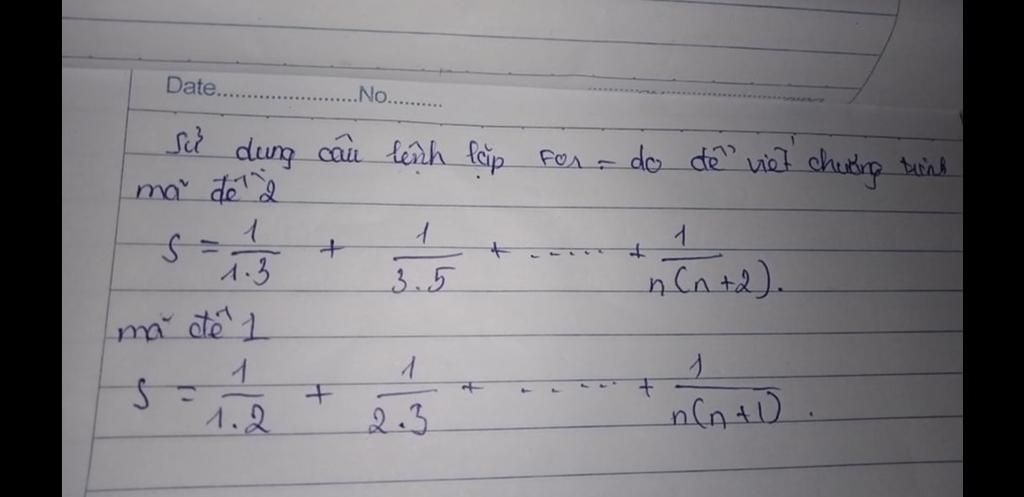 Date........................No..........
Sử dụng câu lệnh lặp For - do để viết chương trình
mã đề 2
S = 1/1.3 + 1/3.5 + ..... + 1/n(n+2).
mã đề 1
S = 1/1.2 + 1/2.3 + ..... + 1/n(n+1).